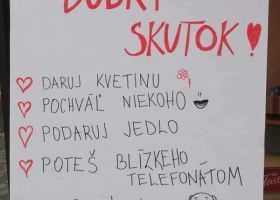 DOBRÝ
SKUTOK!
DARUJ KVETINU
POCHVÁĽ NIEKOHO
PODARUJ JEDLO
POTEŠ BLÍZKEHO
TELEFONÁTOM